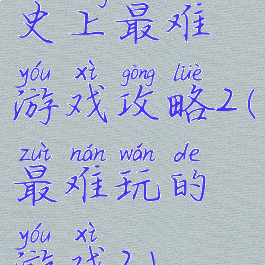 史上最难
yóu xì gōng lüè
游戏攻略2(
zuì nán wán de
最难玩的
yóu xì
游戏2)